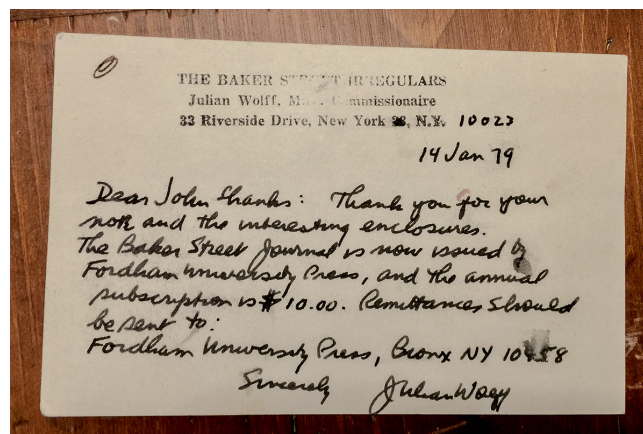 THE BAKER STREET IRREGULARS
Julian Wolff, M. Commissionaire
33 Riverside Drive, New York N.Y. 10023
14 Jan 79
Dear John Shanks: Thank you for your
note and the interesting enclosures.
The Baker Street Journal is now issued by
Fordham University Press, and the annual
subscription is $10.00. Remittances should
be sent to:
Fordham University Press, Bronx NY 10458
Sincerely Julian Wolff